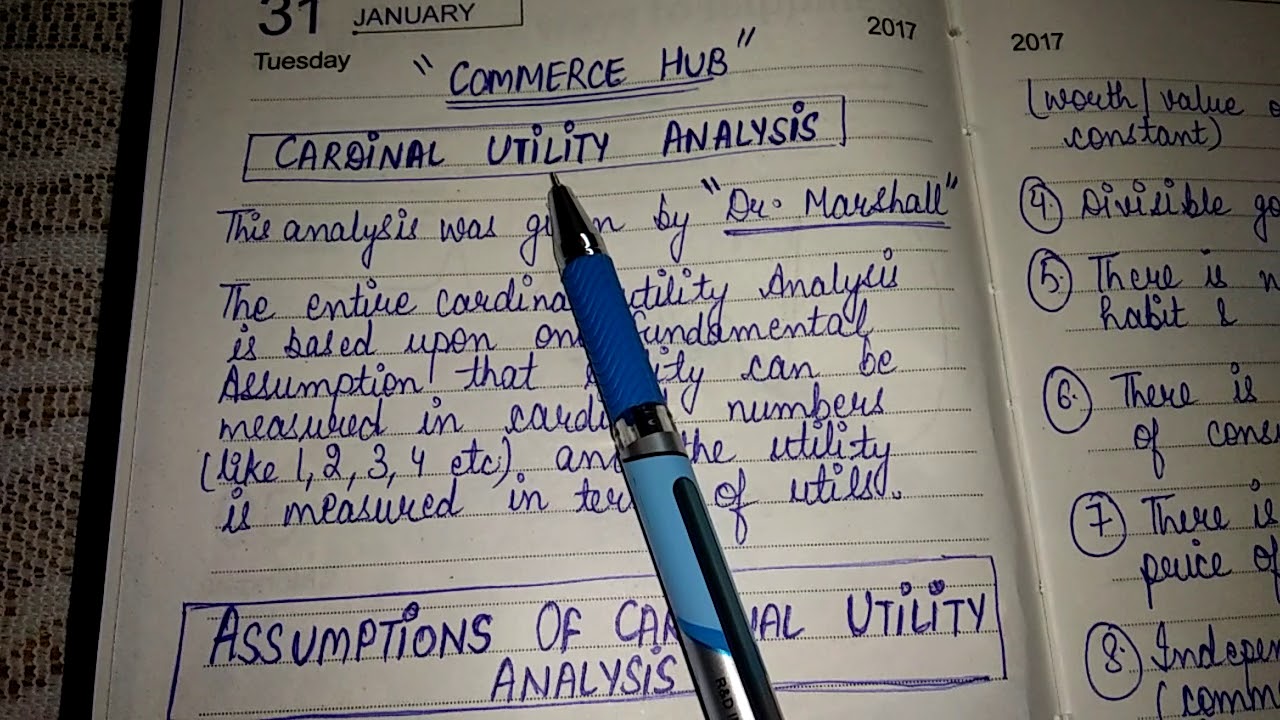 31 JANUARY
Tuesday
2017
" COMMERCE HUB "
CARDINAL UTILITY ANALYSIS
This analysis was by "Dr. Marshall"
The entire Analysis
is based upon
Assumption that can be
measured in numbers
(like 1, 2, 3, 4 etc) the utility
is measured in of utils.
ASSUMPTIONS OF UTILITY
ANALYSIS
2017
(worth/value
constant)
4) Divisible
5. There is
habit &
6. There is
of
7) There is
price
8.
R&D